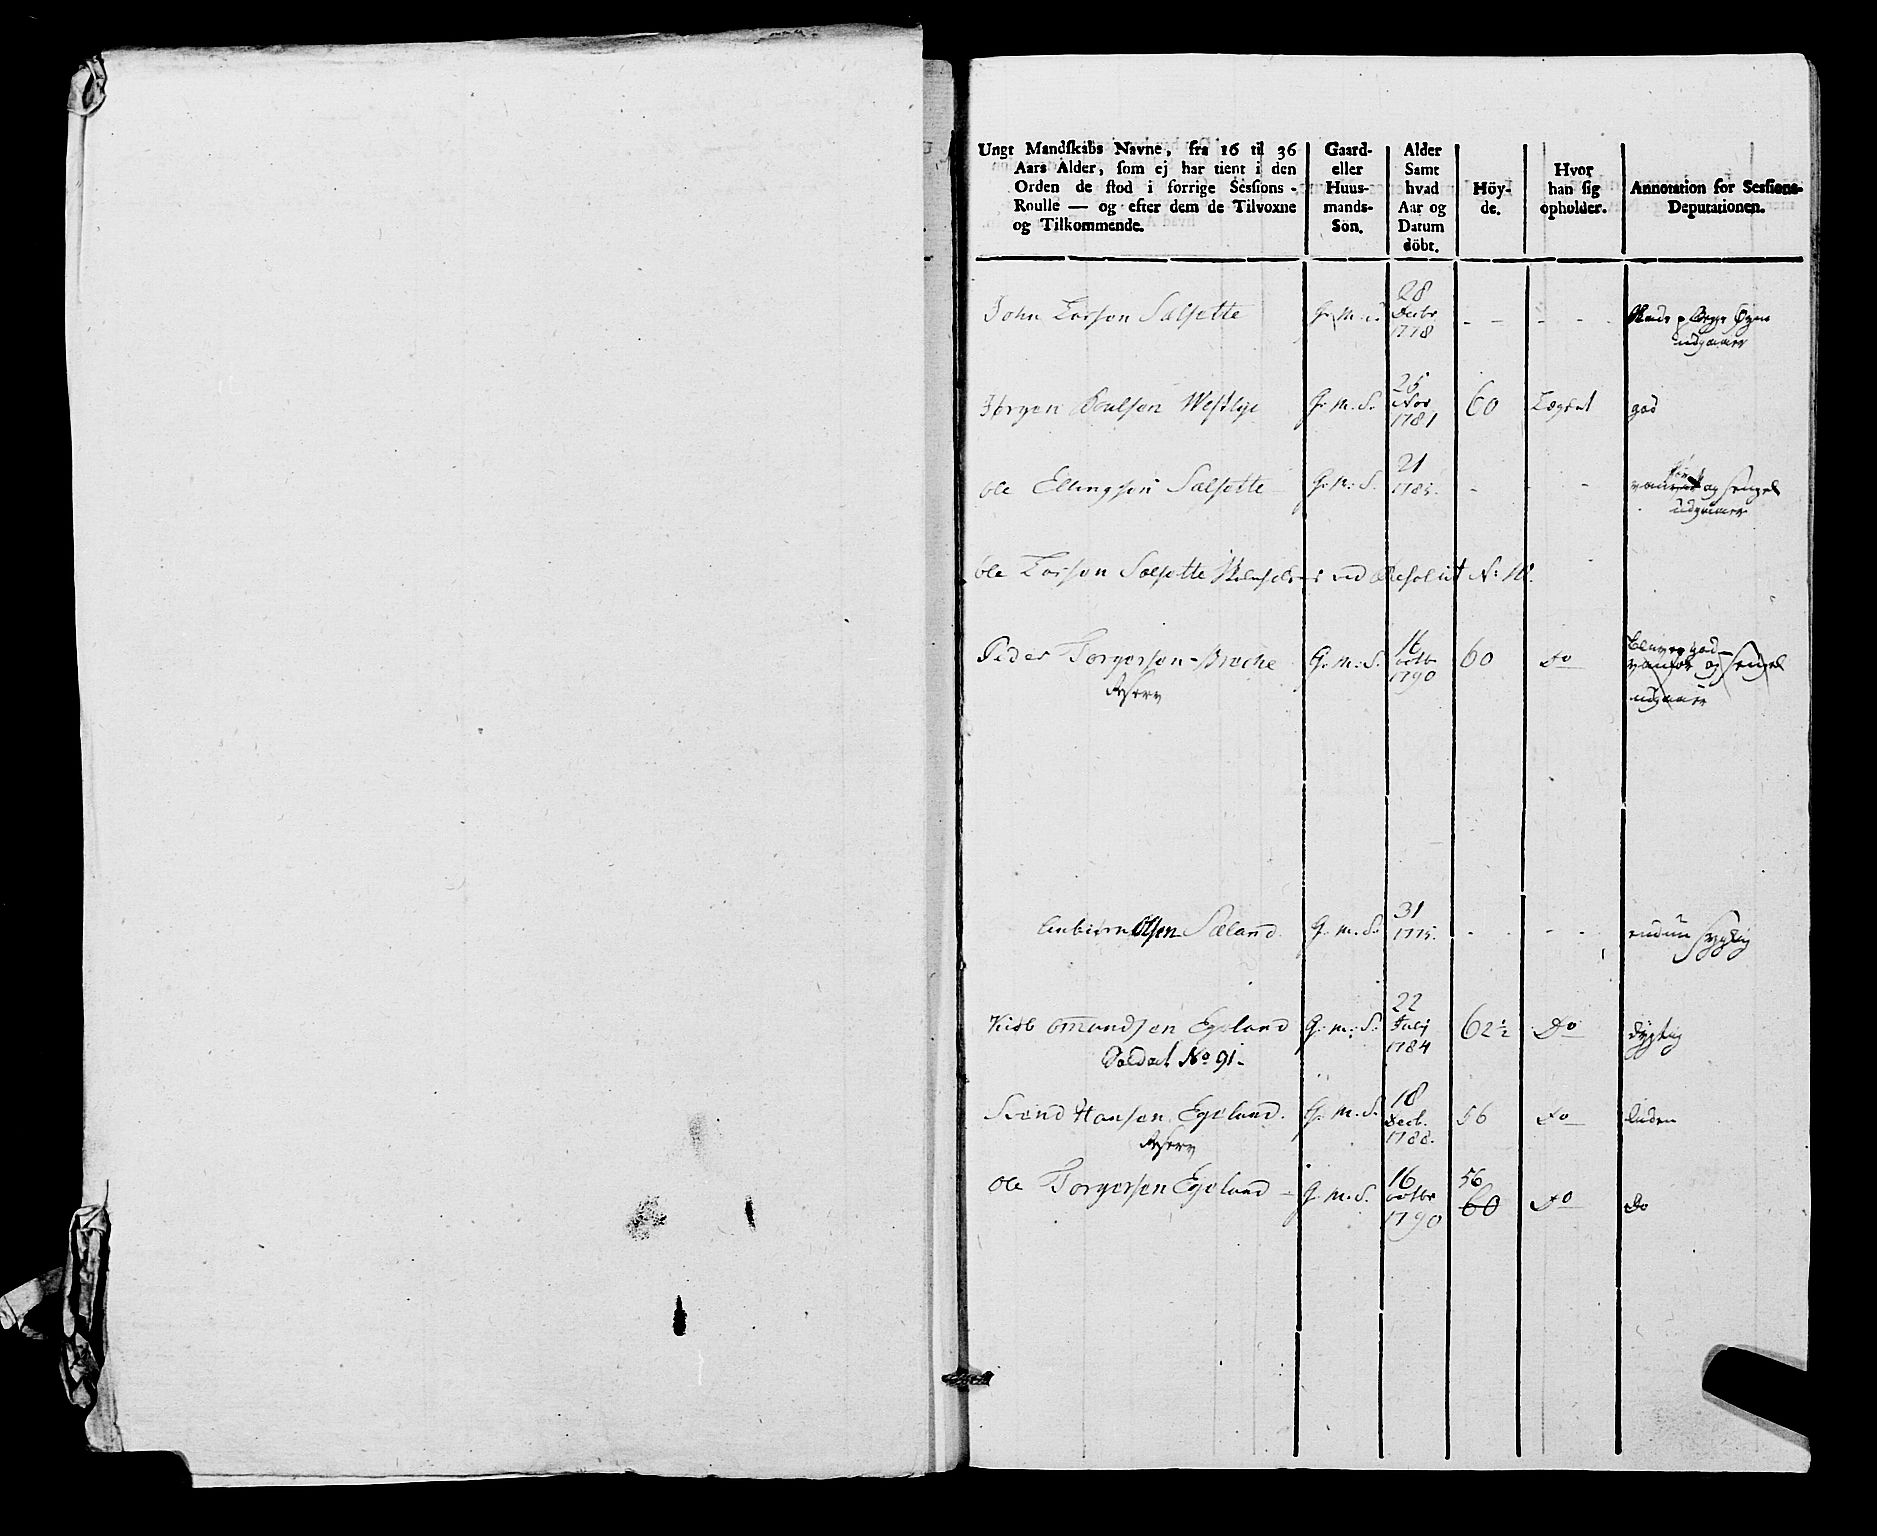 Ungt Mandſkabs Navne, fra 16 til 36
Aars Alder, ſom ej har tient i den
Orden de ſtod i forrige Sesſions-
Roulle — og efter dem de Tilvoxne
og Tilkommende.
Gaard-
eller
Huus-
mands-
Sön.
Alder
Samt
hvad
Aar og
Datum
döbt.
Höy-
de.
Hvor
han ſig
opholder.
Annotation for Sesſions-
Deputationen.
John Larson Salſette G. M. S. 28 Decbr 1778 - - - -
udgaaer
Jörgen Poulsen Westlye G. M. S. 25 Nov 1781 60 Lægdet god
Ole Ellingsen Salſette G. M. S. 21 1785. - - -
og ſengel
udgaaer
Ole Larson Salſette ved Resolut N: 18.
Peder Torgerson Broche G. M. S. 16 octbr 1790 60 Do
Reserv
god
og ſengel
udgaaer
Olsen Sæland G. M. S. 31 1775. - - - - endnu Sygelig
Omundsen Egeland G. M. S. 22 Julj 1784 62½ Do dygtig
Soldat No 91.
Svend Hansen Egeland. G. M. S. 18 Decb. 1788. 56 Do liden
Reserv
Ole Torgersen Egeland - G. M. S. 16 octbr 1790 56 60 Do Do